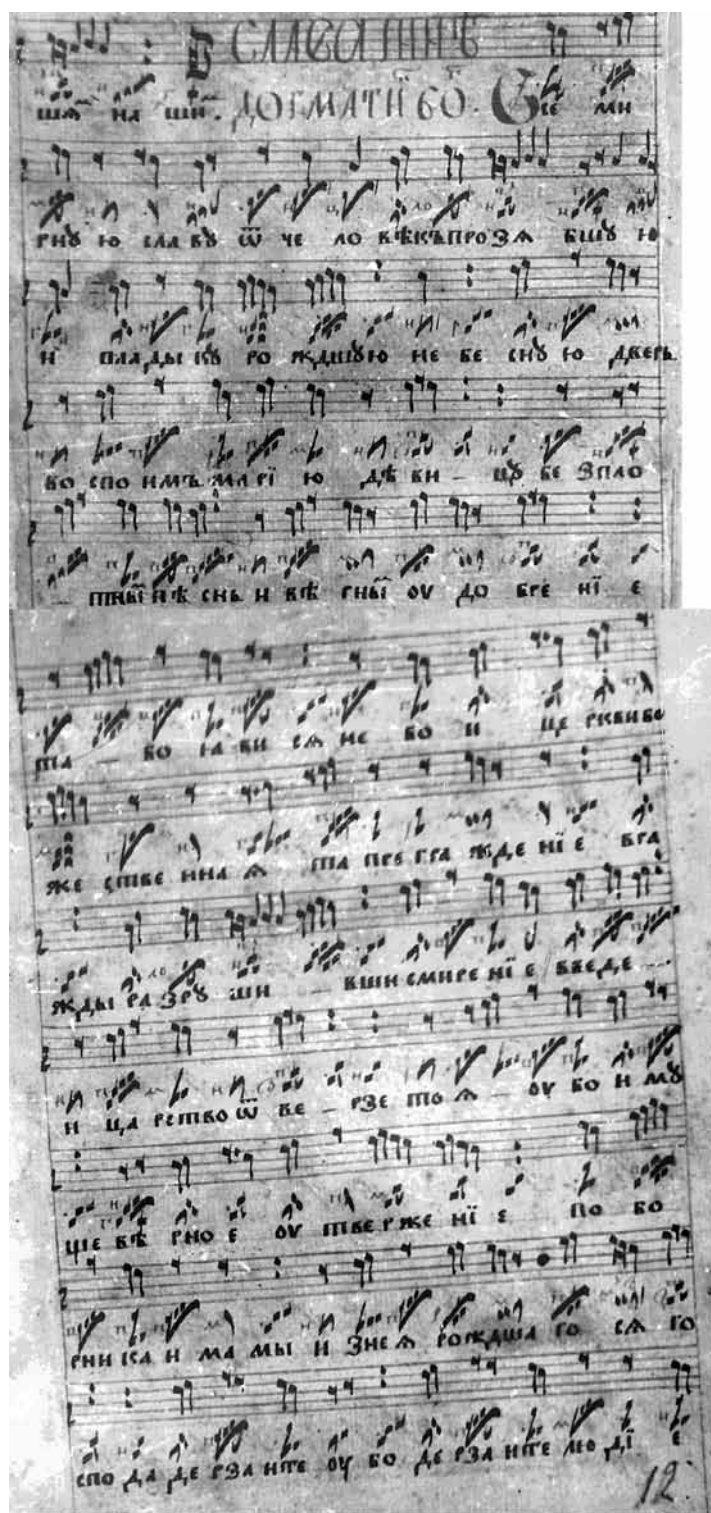 СЛАВА ИНЪ
шѧ на ши. ДОГМАТИ БО. Все ми
рнꙋ ю сла вꙋ ѿ че ло вѣкъ про зѧ бшꙋ ю
и влады кꙋ ро ждшꙋю не бе снꙋ ю дверь
во спо имъ ма рї ю дѣ ви – цꙋ бе зпло
– тныї пѣ снь и вѣ рныї оу до бре нї е
та – бо ꙗ ви сѧ не бо и це ркви бо
же стве ннаѧ та пре гра жде нї е вра
жды ра зрꙋ ши – вши смире нї е введе –
и ца рство ѿ ве – рзе то ѧ – оу бо и мꙋ
ще вѣ рно е оу тве рже нї е по бо
рни ка и ма мы и зне ѧ рождша го сѧ го
спо да де рза ите оу бо де рза ите лю дї е
12